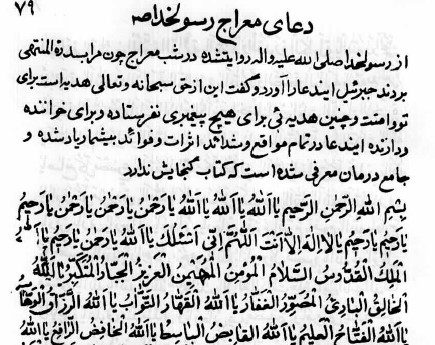 ۷۹
دعای معراج رسولخدا ص
از رسولخدا صلی الله علیه واله روایتشده در شب معراج چون مرا بسدرة المنتهی
بردند جبرئیل ایندعا را آورد و گفت این از حق سبحانه و تعالی هدیه است برای
تو و امتت و چنین هدیه ئی برای هیچ پیغمبری نفرستاده و برای خواننده
و دارنده ایندعا در تمام مواقع و شدائد اثرات و فوائد بیشمار یاد شده و
جامع درمان معرفی شده است که کتاب گنجایش ندارد
بِسْمِ اللهِ الرَّحْمنِ الرَّحیمِ یا اَللهُ یا اَللهُ یا اَللهُ یا رَحْمنُ یا رَحْمنُ یا رَحْمنُ یا رَحیمُ
یا رَحیمُ یا رَحیمُ یا لا اِلهَ اِلاّ اَنْتَ اَللّهُمَّ اِنّی اَسْئَلُكَ یا اَللهُ یا رَحْمنُ یا رَحیمُ یا اَللهُ
الْمَلِكُ الْقُدُّوسُ السَّلامُ الْمُؤْمِنُ الْمُهَیْمِنُ الْعَزیزُ الْجَبّارُ الْمُتَكَبِّرُ یا اَللهُ
الْخالِقُ الْبارِئُ الْمُصَوِّرُ الْغَفّارُ یا اَللهُ الْقَهّارُ التَّوّابُ یا اَللهُ الرَّزّاقُ الْوَهّابُ
یا اَللهُ الْفَتّاحُ الْعَلیمُ یا اَللهُ الْقابِضُ الْباسِطُ یا اَللهُ الْخافِضُ الرّافِعُ یا اَللهُ